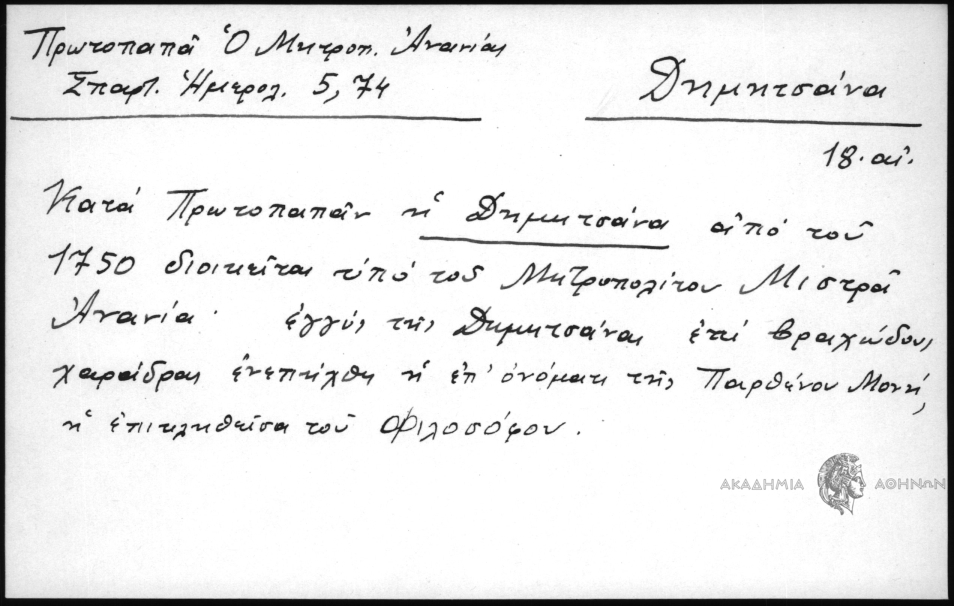 Πρωτοπαπᾶ Ὁ Μητροπ. Ἀνανίας
Σπαρτ. Ἡμερολ. 5, 74
Δημητσάνα
18. αἰ.
Κατά Πρωτοπαπᾶν ἡ Δημητσάνα ἀπό τοῦ
1750 διοικεῖται ὑπό τοῦ Μητροπολίτου Μιστρᾶ
Ἀνανία· ἐγγύς τῆς Δημητσάνας ἐπί βραχώδους
χαράδρας ἐνεπήχθη ἡ ἐπ' ὀνόματι τῆς Παρθένου Μονή,
ἡ ἐπικληθεῖσα τοῦ Φιλοσόφου.
ΑΚΑΔΗΜΙΑ ΑΘΗΝΩΝ